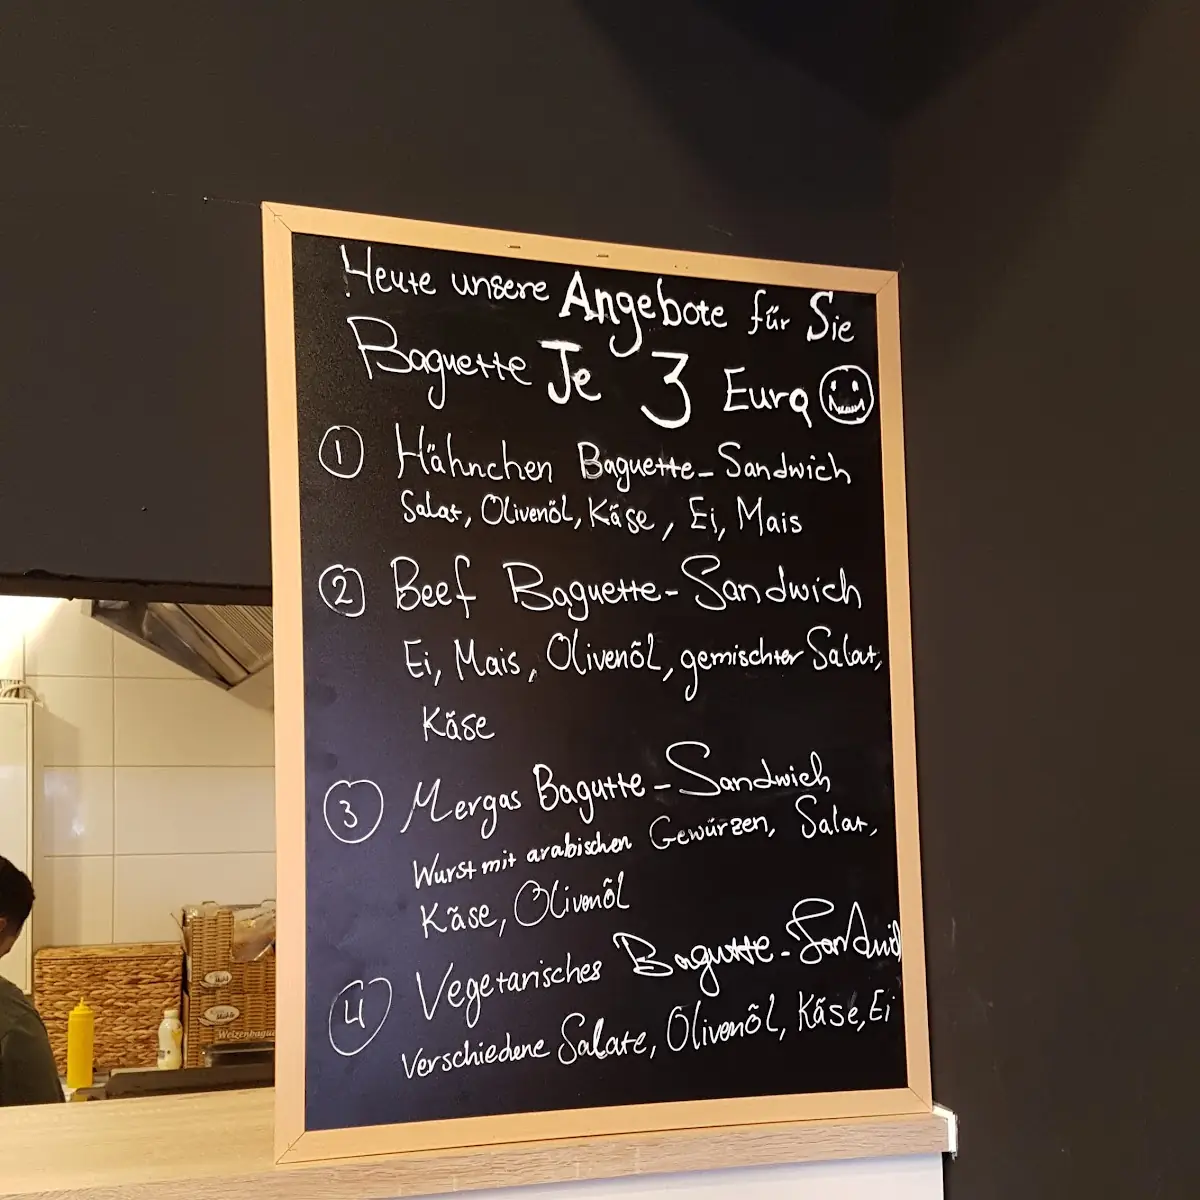 Heute unsere Angebote für Sie
Baguette Je 3 Euro
1 Hähnchen Baguette-Sandwich
Salat, Olivenöl, Käse, Ei, Mais
2 Beef Baguette-Sandwich
Ei, Mais, Olivenöl, gemischter Salat,
Käse
3 Mergas Bagutte-Sandwich
Wurst mit arabischen Gewürzen, Salat,
Käse, Olivenöl
4 Vegetarisches Bagutte-
Verschiedene Salate, Olivenöl, Käse, Ei
Weizenbague